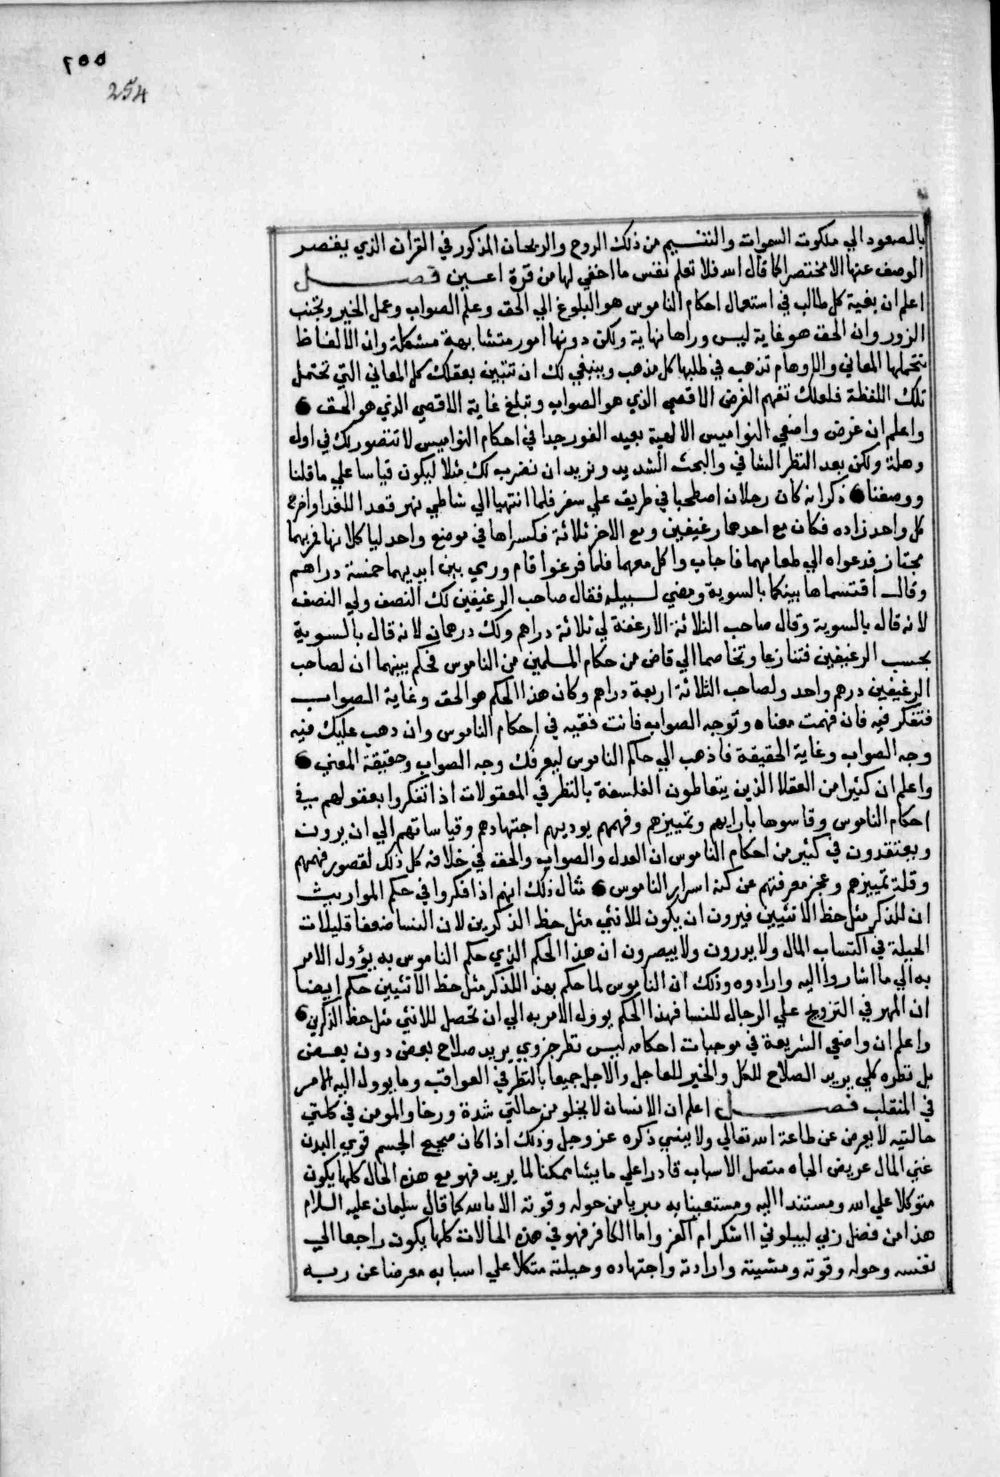 ٢٥٥
254
بالصعود الي ملكوت السموات والتنسيم من ذلك الروح والريحان المذكور في القران الذي يقتصر
الوصف عنها الا مختصرا كما قال الله فلا تعلم نفس ما اخفي لها من قرة اعين فصل
اعلم ان بغية كل طالب في استعمال احكام الناموس هو البلوغ الي الحق وعلم الصواب وعمل الخير وتجنب
الزور وان الحق هو غاية ليس وراها نهاية ولكن دونها امور متشابهة مشكلة وان الالفاظ
تتحملها المعاني والاوهام تذهب في طلبها كل مذهب وينبغي لك ان تتبين بعقلك كل المعاني التي تحتمل
تلك اللفظة فلعلك تفهم الغرض الاقصي الذي هو الصواب وتبلغ غاية الاقصي الذي هو الحق
واعلم ان غرض واضعي النواميس الالهية بعيد الغور جدا في احكام النواميس لا تتصور لك في اول
وهلة ولكن بعد النظر الشافي والبحث الشديد ونريد ان نضرب لك مثلا ليكون قياسا علي ما قلنا
ووصفنا ذكر انه كان رجلان اصطحبا في طريق علي سفر فلما انتهيا الي شاطي نهر قعدا للغدا واخرج
كل واحد زاده فكان مع احدهما رغيفين ومع الاخر ثلاثة فكسراها في موضع واحد لياكلانها فمر بهما
مجتاز فدعواه الي طعامهما فاجاب واكل معهما فلما فرغوا قام ورمي بين ايديهما خمسة دراهم
وقال اقتسماها بينكما بالسوية ومضي لسبيله فقال صاحب الرغيفين لك النصف ولي النصف
لانه قال بالسوية وقال صاحب الثلاثة الارغفة لي ثلاثة دراهم ولك درهمان لانه قال بالسوية
بحسب الرغيفين فتنازعا وتخاصما الي قاض من حكام المسلمين من الناموس فحكم بينهما ان لصاحب
الرغيفين درهم واحد ولصاحب الثلاثة اربعة دراهم وكان هذا الحكم هو الحق وغاية الصواب
فتفكر فيه فان فهمت معناه وتوجه الصواب فانت فقيه في احكام الناموس وان ذهب عليك فيه
وجه الصواب وغاية الحقيقة فاذهب الي حاكم الناموس ليعرفك وجه الصواب وحقيقة المعني
واعلم ان كثيرا من العقلا الذين يتعاطون الفلسفة بالنظر في المعقولات اذا تفكروا بعقولهم في
احكام الناموس وقاسوها بارايهم وتمييزهم وفهمهم يوديهم اجتهادهم وقياساتهم الي ان يرون
ويعتقدون في كثير من احكام الناموس ان العدل والصواب والحق في خلافه كل ذلك لقصور فهمهم
وقلة تمييزهم وعجز معرفتهم عن كنه اسرار الناموس مثال ذلك انهم اذا فكروا في حكم المواريث
ان للذكر مثل حظ الانثيين فيرون ان يكون للانثي مثل حظ الذكرين لان النسا ضعفا قليلات
الحيلة في اكتساب المال ولا يدرون ولا يبصرون ان هذا الحكم الذي حكم الناموس به يؤول الامر
به الي ما اشاروا اليه وارادوه وذلك ان الناموس لما حكم بهذا للذكر مثل حظ الانثيين حكم ايضا
ان المهر في التزويج علي الرجال للنسا فهذا الحكم يوول الامر به الي ان تحصل للانثي مثل حظ الذكرين
واعلم ان واضعي الشريعة في موجبات احكامه ليس نظر جزوي يريد صلاح بعض دون بعض
بل نظره كلي يريد الصلاح للكل والخير للعاجل والاجل جميعا بالنظر في العواقب وما يوول اليه الامر
في المنقلب فصل اعلم ان الانسان لا يخلو من حالتي شدة ورخا والمومن في كلتي
حالتيه لا يعرض عن طاعة الله تعالي ولا ينسي ذكره عز وجل وذلك اذا كان صحيح الجسم قوي البدن
غني المال عريض الجاه متصل الاسباب قادرا علي ما يشا ممكنا لما يريد فهو مع هذه الحال كلها يكون
متوكلا علي الله ومستندا اليه ومستعينا به مبريا من حوله وقوته الا بالله كما قال سليمان عليه السلام
هذا من فضل ربي ليبلوني ااشكر ام اكفر واما الكافر فهو في هذه الحالات كلها يكون راجعا الي
نفسه وحوله وقوته ومشيته وارادته واجتهاده وحيلته متكلا علي اسبابه معرضا عن ربه